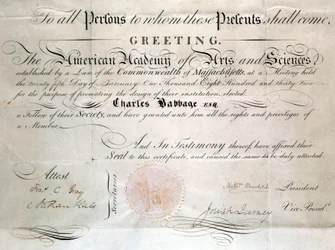 To all Persons to whom these Presents shall come,
GREETING.
The American Academy of Arts and Sciences,
established by a Law of the Commonwealth of Massachusetts, at a Meeting held
the twenty fifth Day of January One thousand Eight Hundred and thirty
for the purpose of promoting the design of their institution, elected
Charles Babbage ESQ.
a Fellow of their Society, and have granted unto him all the rights and privileges of
a Member.
And In Testimony thereof have affixed their
Seal to this certificate, and caused the same to be duly attested.
Attest
President
Secretaries
Vice Presidt.